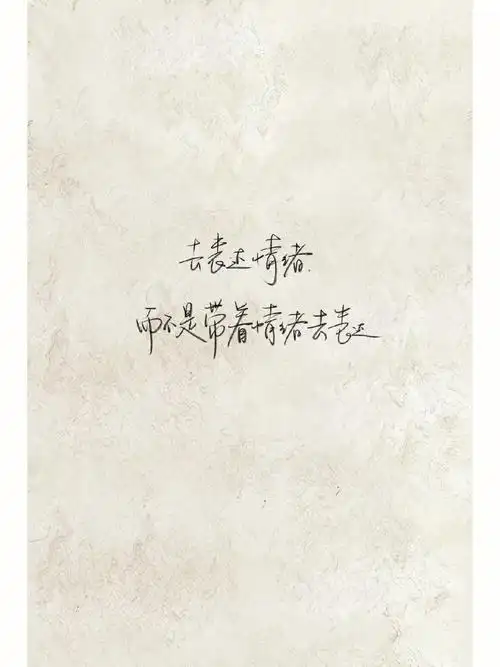 去表述情绪.
而不是带着情绪去表述